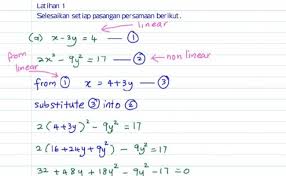 Latihan 1
Selesaikan setiap pasangan persamaan berikut.
linear
(a) x - 3y = 4 — ①
from linear
2x² - 9y² = 17 — ② ← non linear
from ① x = 4 + 3y — ③
substitute ③ into ②
2(4+3y)² - 9y² = 17
2(16+24y+9y²) - 9y² = 17
32 + 48y + 18y² - 9y² - 17 = 0